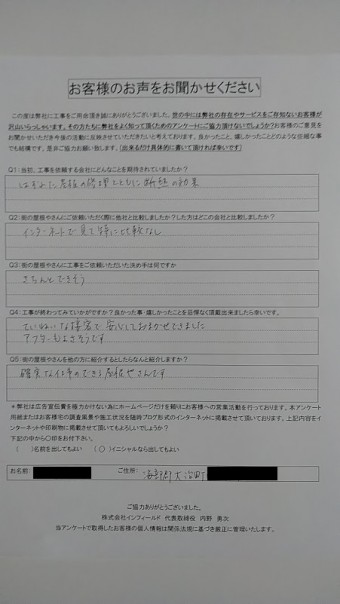 お客様のお声をお聞かせください
この度は弊社に工事をご用命頂き誠にありがとうございました。世の中には弊社の存在やサービスをご存知ないお客様が
沢山いらっしゃいます。その方たちにも弊社をよく知って頂くためのアンケートにご協力頂けないでしょうか?お客様のご意見を
お聞かせいただき今後の活動に反映させていただきたいと考えております。良かったこと、嬉しかったことどのような些細な事
でも結構です。是非ご協力お願い致します。(出来るだけ具体的に書いて頂ければ幸いです)
Q1:当初、工事を依頼する会社にどんなことを期待されていましたか?
屋根の修理とともに断熱の効果
Q2:街の屋根やさんにご依頼いただく際に他社と比較しましたか?した方はどこの会社と比較しましたか?
インターネットで見て特に比較なし
Q3:街の屋根やさんに工事をご依頼いただいた決め手は何ですか
きちんとできそう
Q4:工事が終わってみていかがですか?良かった事・嬉しかったことを忌憚なく頂戴出来ましたら幸いです。
ていねいな接客で安心しておまかせできました
アフターもよさそうです
Q5:街の屋根やさんを他の方に紹介するとしたらなんと紹介しますか?
確実な仕事のできる屋根やさんです
*弊社は広告宣伝費を極力かけない為にホームページだけを頼りにお客様への営業活動を行っております。本アンケート
用紙またはお客様宅の調査風景や施工状況を随時ブログ形式のインターネットに掲載させて頂いております。上記内容をイ
ンターネットや印刷物に掲載させて頂いてもよろしいでしょうか?
下記の中から○印をお付け下さい。
( )名前を出してもよい (○)イニシャルなら出してもよい
お名前: ご住所: 海部郡大治町
ご協力ありがとうございました。
株式会社インフィールド 代表取締役 内野 勇次
当アンケートで取得したお客様の個人情報は関係法規に基づき厳正に管理いたします。